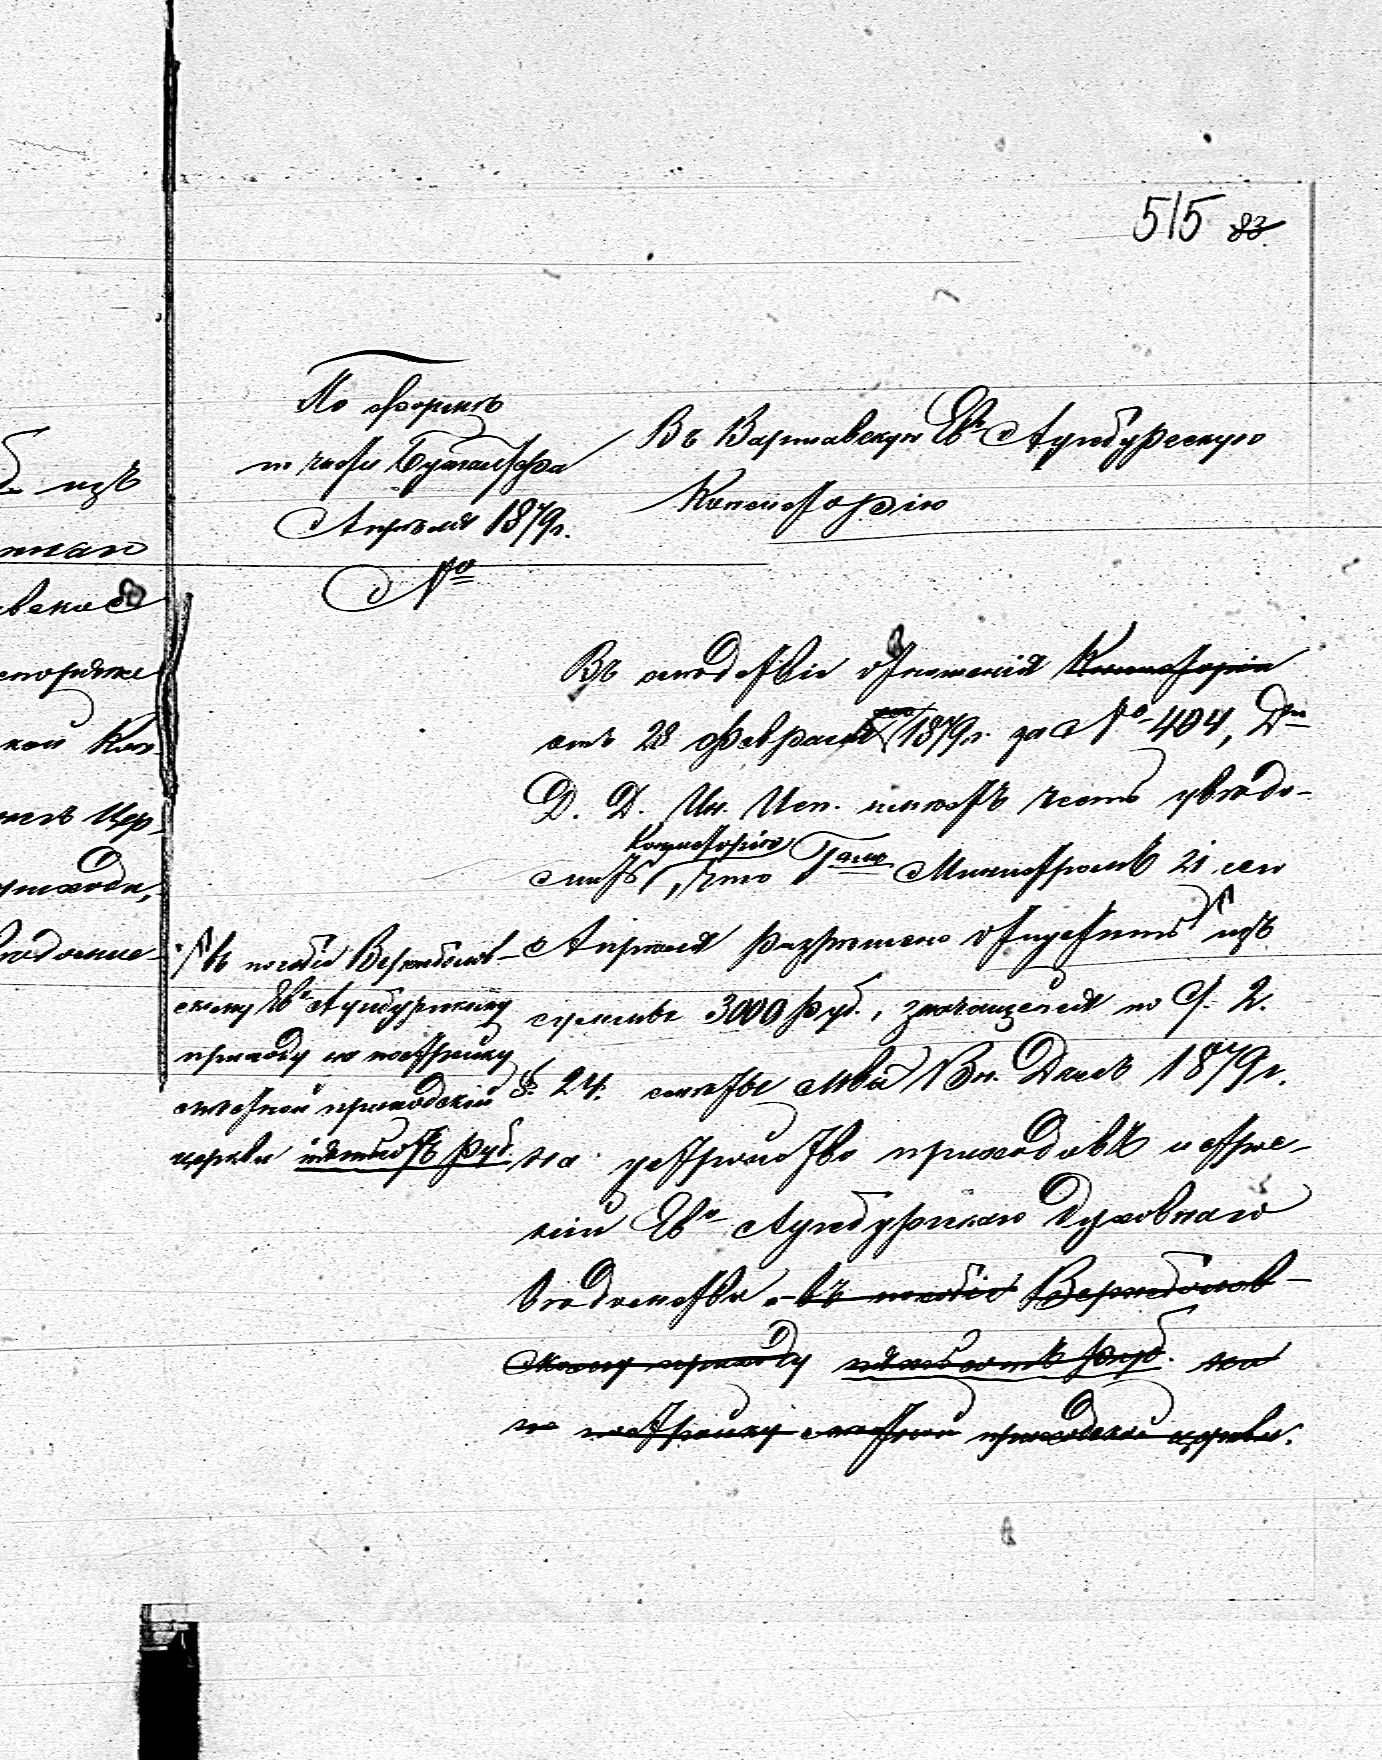 515 83.
По формѣ
по части Бухгалтера
Апрѣля 1879 г.
№
Въ Варшавскую Ев. Аугсбургскую
Консисторію
Въ послѣдствіе отношенія Консисторіи
отъ 28 Февраля 1879 г. за № 404, Д-тъ
Д. Д. Ин. Исп. имѣетъ честь увѣдо-
Консисторію
мить, что Г. Министромъ 21 сего
Апрѣля разрѣшено отпустить изъ
суммы 3000 руб., значащейся по ст. 2.
§. 24. смѣты М-ва Вн. Дѣлъ 1879 г.
на устройство приходовъ и строе-
ній Ев. Аугсбургскаго Духовнаго
вѣдомства въ пособіе Вержболов-
скому приходу пятьсотъ руб. на
по постройку мѣстной приходской церкви.
въ пособіе Вержболов-
скому Ев. Аугсбургскому
приходу на постройку
мѣстной приходской
церкви пятьсотъ руб.
изъ
Кон-
прихода,